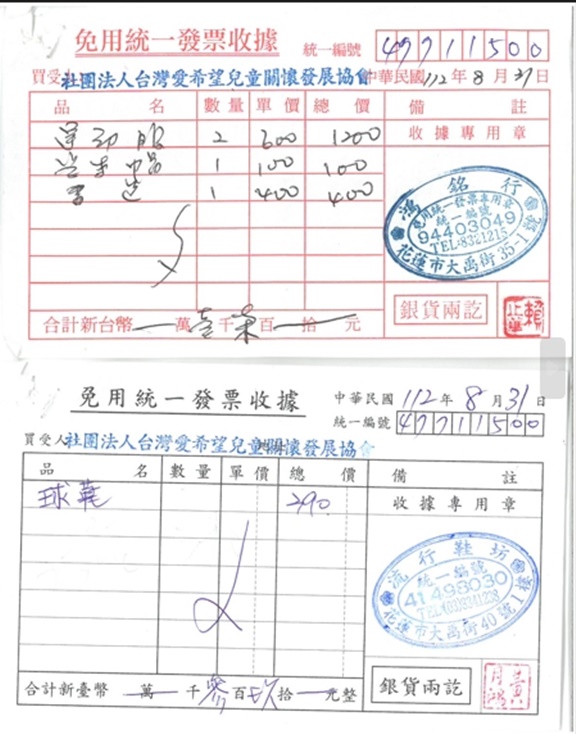 免用統一發票收據 統一編號 47711500
買受 社團法人台灣愛希望兒童關懷發展協會 中華民國112年8月31日
品名 數量 單價 總價 備註
運動服 2 600 1200 收據專用章
1 100 100
1 400 400
鴻銘行
免用統一發票專用章
統一編號
94403049
TEL:8321215
花蓮市大禹街35-1號
銀貨兩訖
合計新台幣 萬壹千柒百 拾 元
免用統一發票收據 中華民國112年8月31日
統一編號 47711500
買受人 社團法人台灣愛希望兒童關懷發展協會
品名 數量 單價 總價 備註
球鞋 390 收據專用章
流行鞋坊
統一編號
41493030
TEL:(03)8341228
花蓮市大禹街40號1樓
銀貨兩訖
黃月鴻
合計新臺幣 萬 千參百玖拾 元整